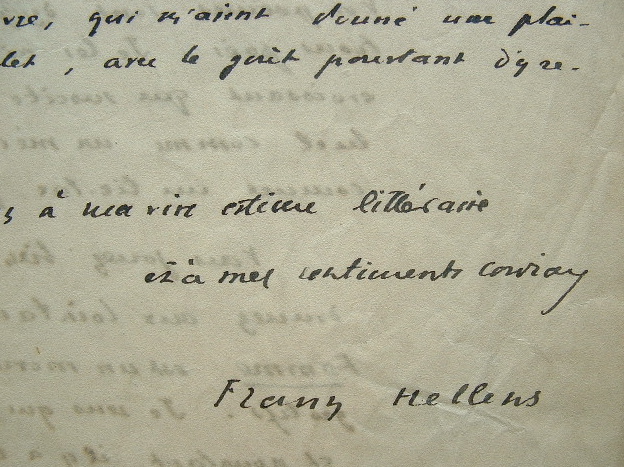 vre, qui m'aient donné une plai-
let, avec le goût pourtant d'y re-
à ma vive estime littéraire
et à mes sentiments cordiaux
Franz Hellens